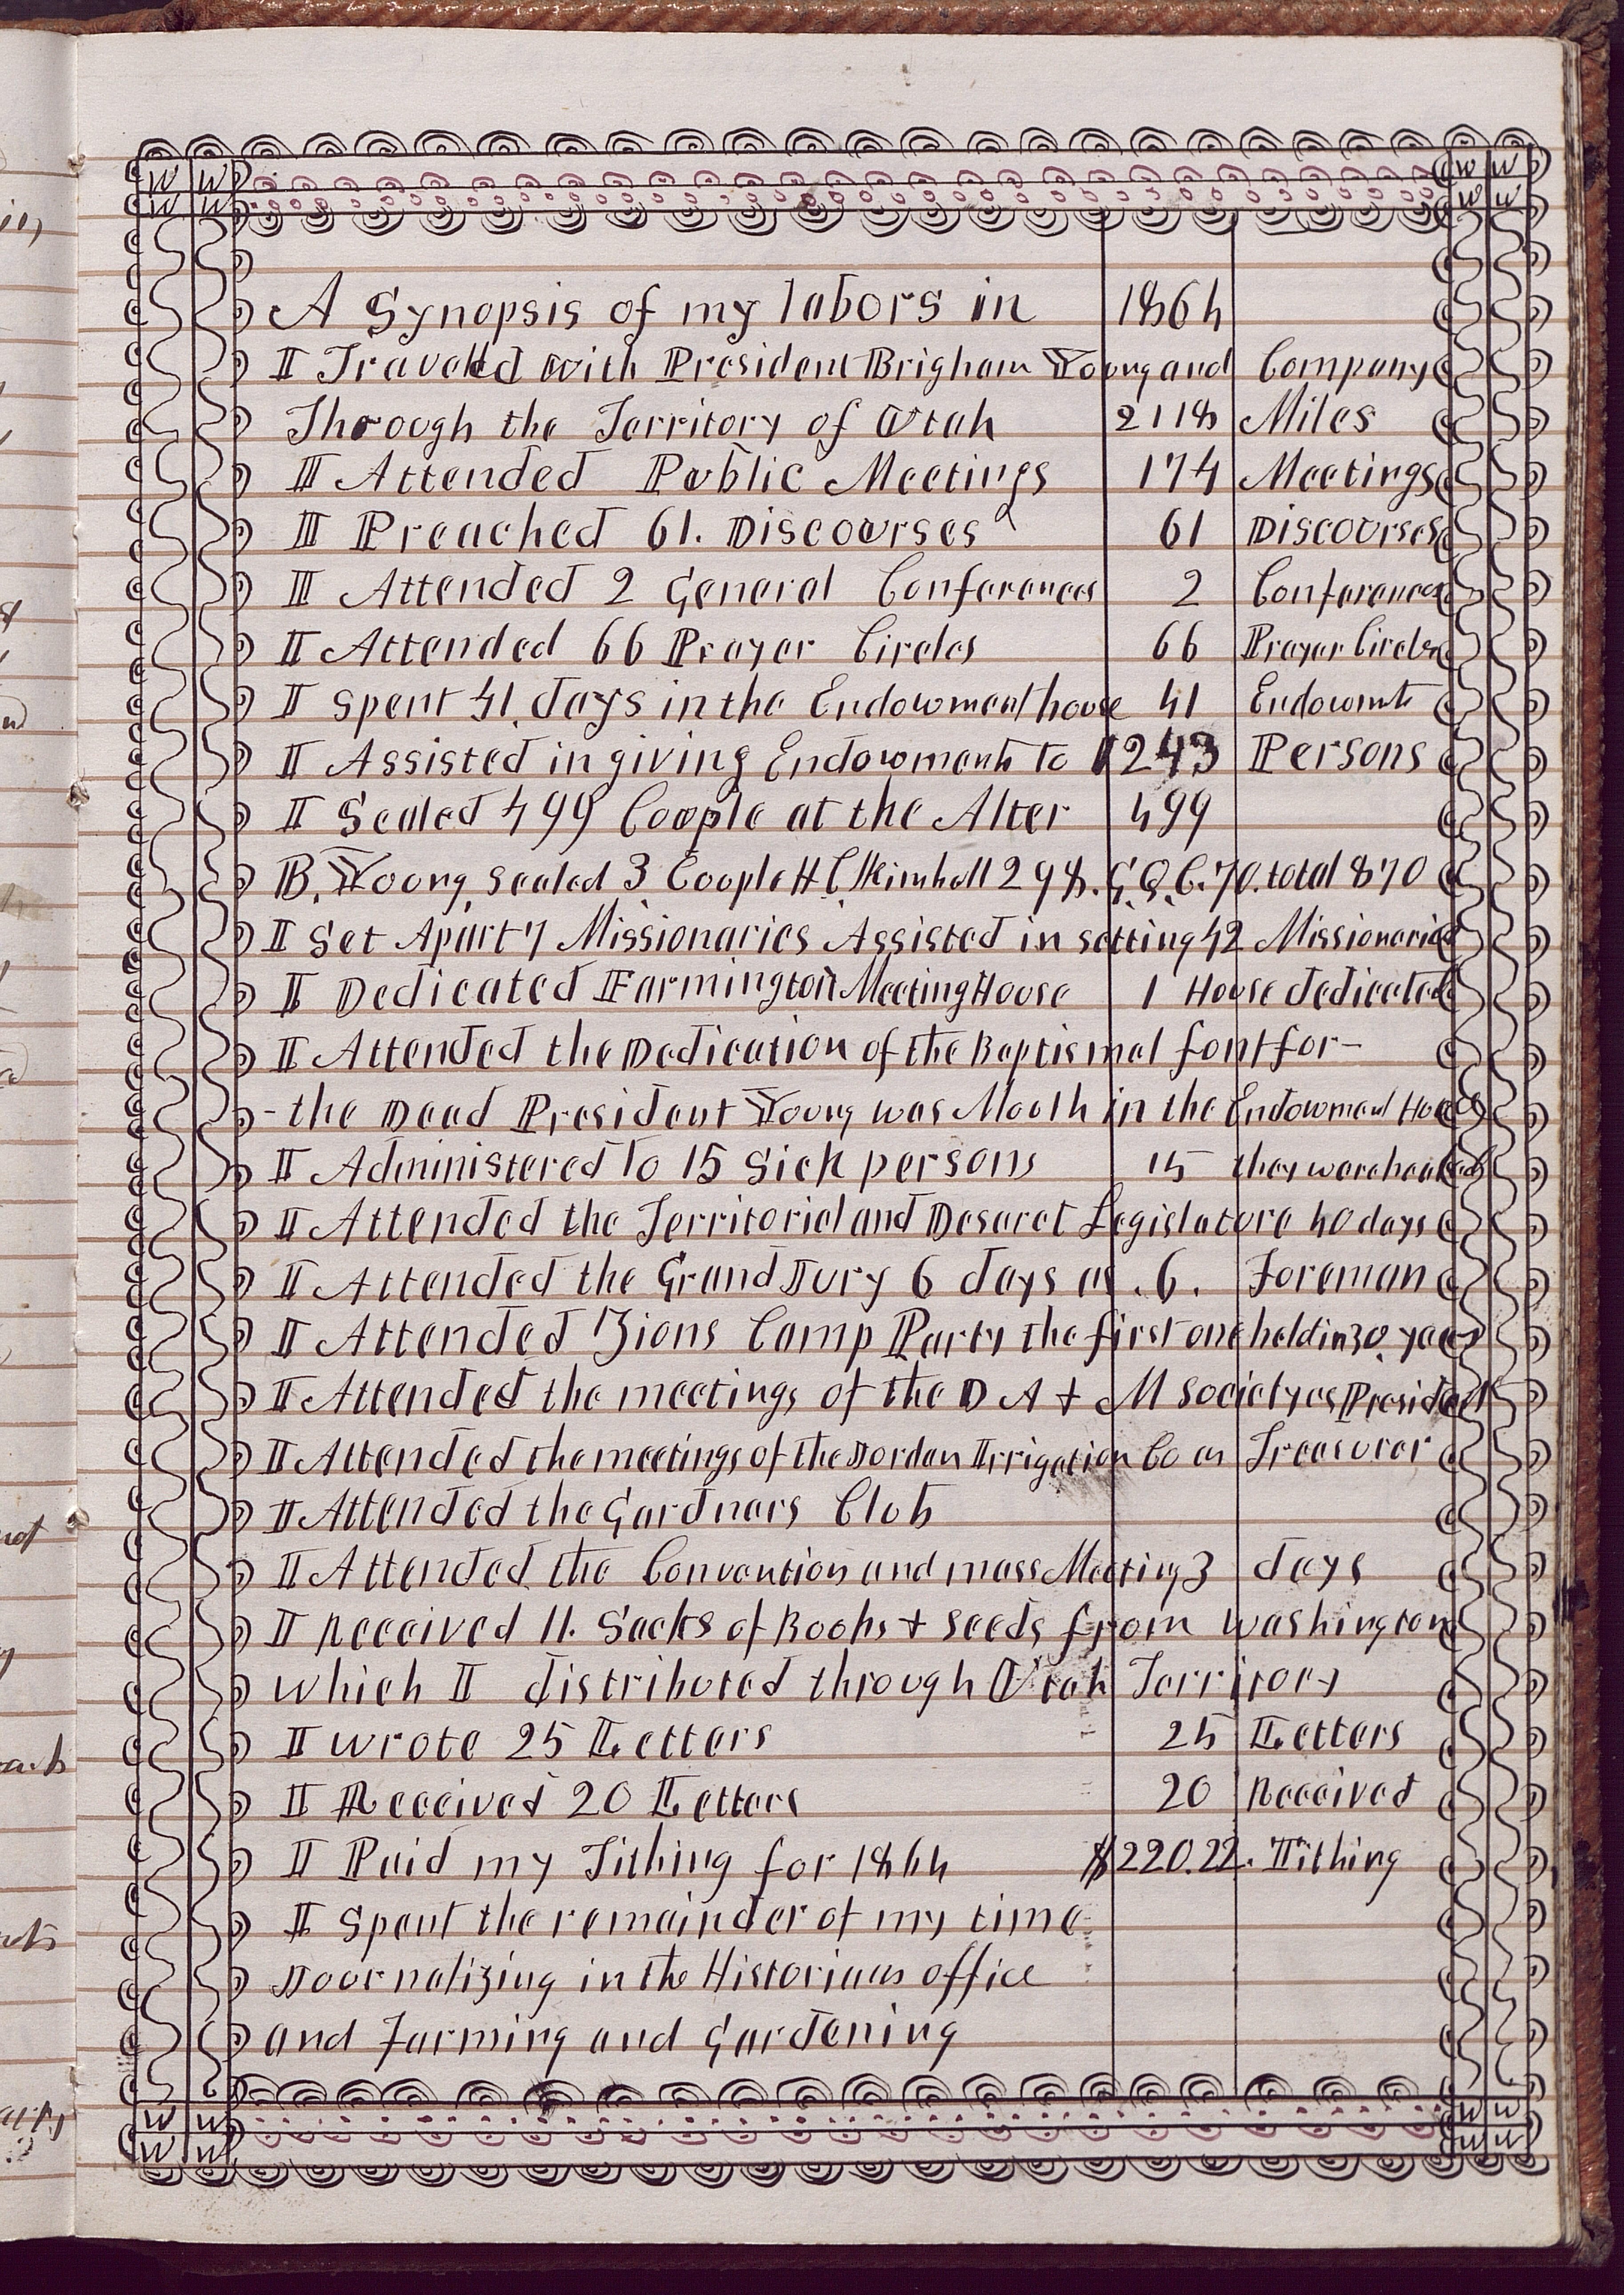 A Synopsis of my labors in 1864
I Travelled with President Brigham Young and Company
Through the Territory of Utah 2118 Miles
I Attended Public Meetings 174 Meetings
I Preached 61. Discourses 61 Discourses
I Attended 2 General Conferences 2 Conferences
I Attended 66 Prayer Circles 66 Prayer Circles
I spent 41 days in the Endowment house 41 Endowmts
I Assisted in giving Endowments to 1243 Persons
I Sealed 499 Couple at the Alter 499
B. Young, sealed 3 Couple H C Kimball 298. G. Q. C. 70. total 870
I Set Apart 7 Missionaries Assisted in setting 42 Missionaries
I Dedicated Farmington Meeting House 1 House dedicated
I Attended the Dedication of the Baptismal font for-
- the Dead President Young was Mouth in the Endowment House
I Administered to 15 Sick persons 15 they were healed
I Attended the Territorial and Deseret Legislature 40 days
I Attended the Grand Jury 6 days as .6. Foreman
I Attended Zions Camp Party the first one held in 30 years
I Attended the meetings of the D A & M Society as President
I Attended the meetings of the Jordan Irrigation Co as Treasurer
I Attended the Gardners Club
I Attended the Convention and mass Meeting 3 days
I Received 11. Sacks of Books & Seeds from Washington
which I distributed through Utah Territory
I wrote 25 Letters 25 Letters
I Received 20 Letters 20 Received
I Paid my Tithing for 1864 $220.22. Tithing
I Spent the remainder of my time
Journalizing in the Historians office
and Farming and Gardening